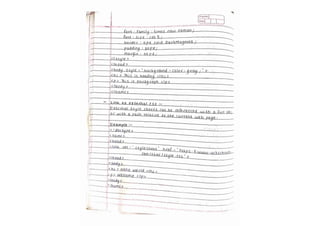 font-family: times new roman;
font-size: 
border: 
padding: 
margin: 
</style>
</head>
<body style = "background-color: gray;">
<h1> This is heading </h1>
<p> This is paragraph </p>
</body>
</html>
Link as External CSS :-
External style sheets can be referenced with a full url
or with a path relative to the current web page.
Example :-
<!doctype>
<html>
<head>
<link rel = "stylesheet" href = "https://www.
/style.css">
</head>
<body>
<h1> Hello world </h1>
<p> welcome </p>
</body>
</html>